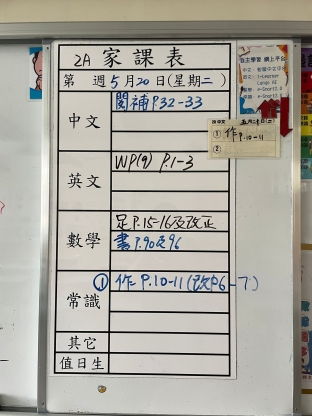 2A 家課表
第 週 5月20日(星期二)
中文
閱補 P.32-33
英文
WP(9) P.1-3
數學
足 P.15-16及改正
書 P.90及96
常識
① 作 P.10-11 (改P.6-7)
其它
值日生
自主學習 網上平台
① 作 P.10-11
②